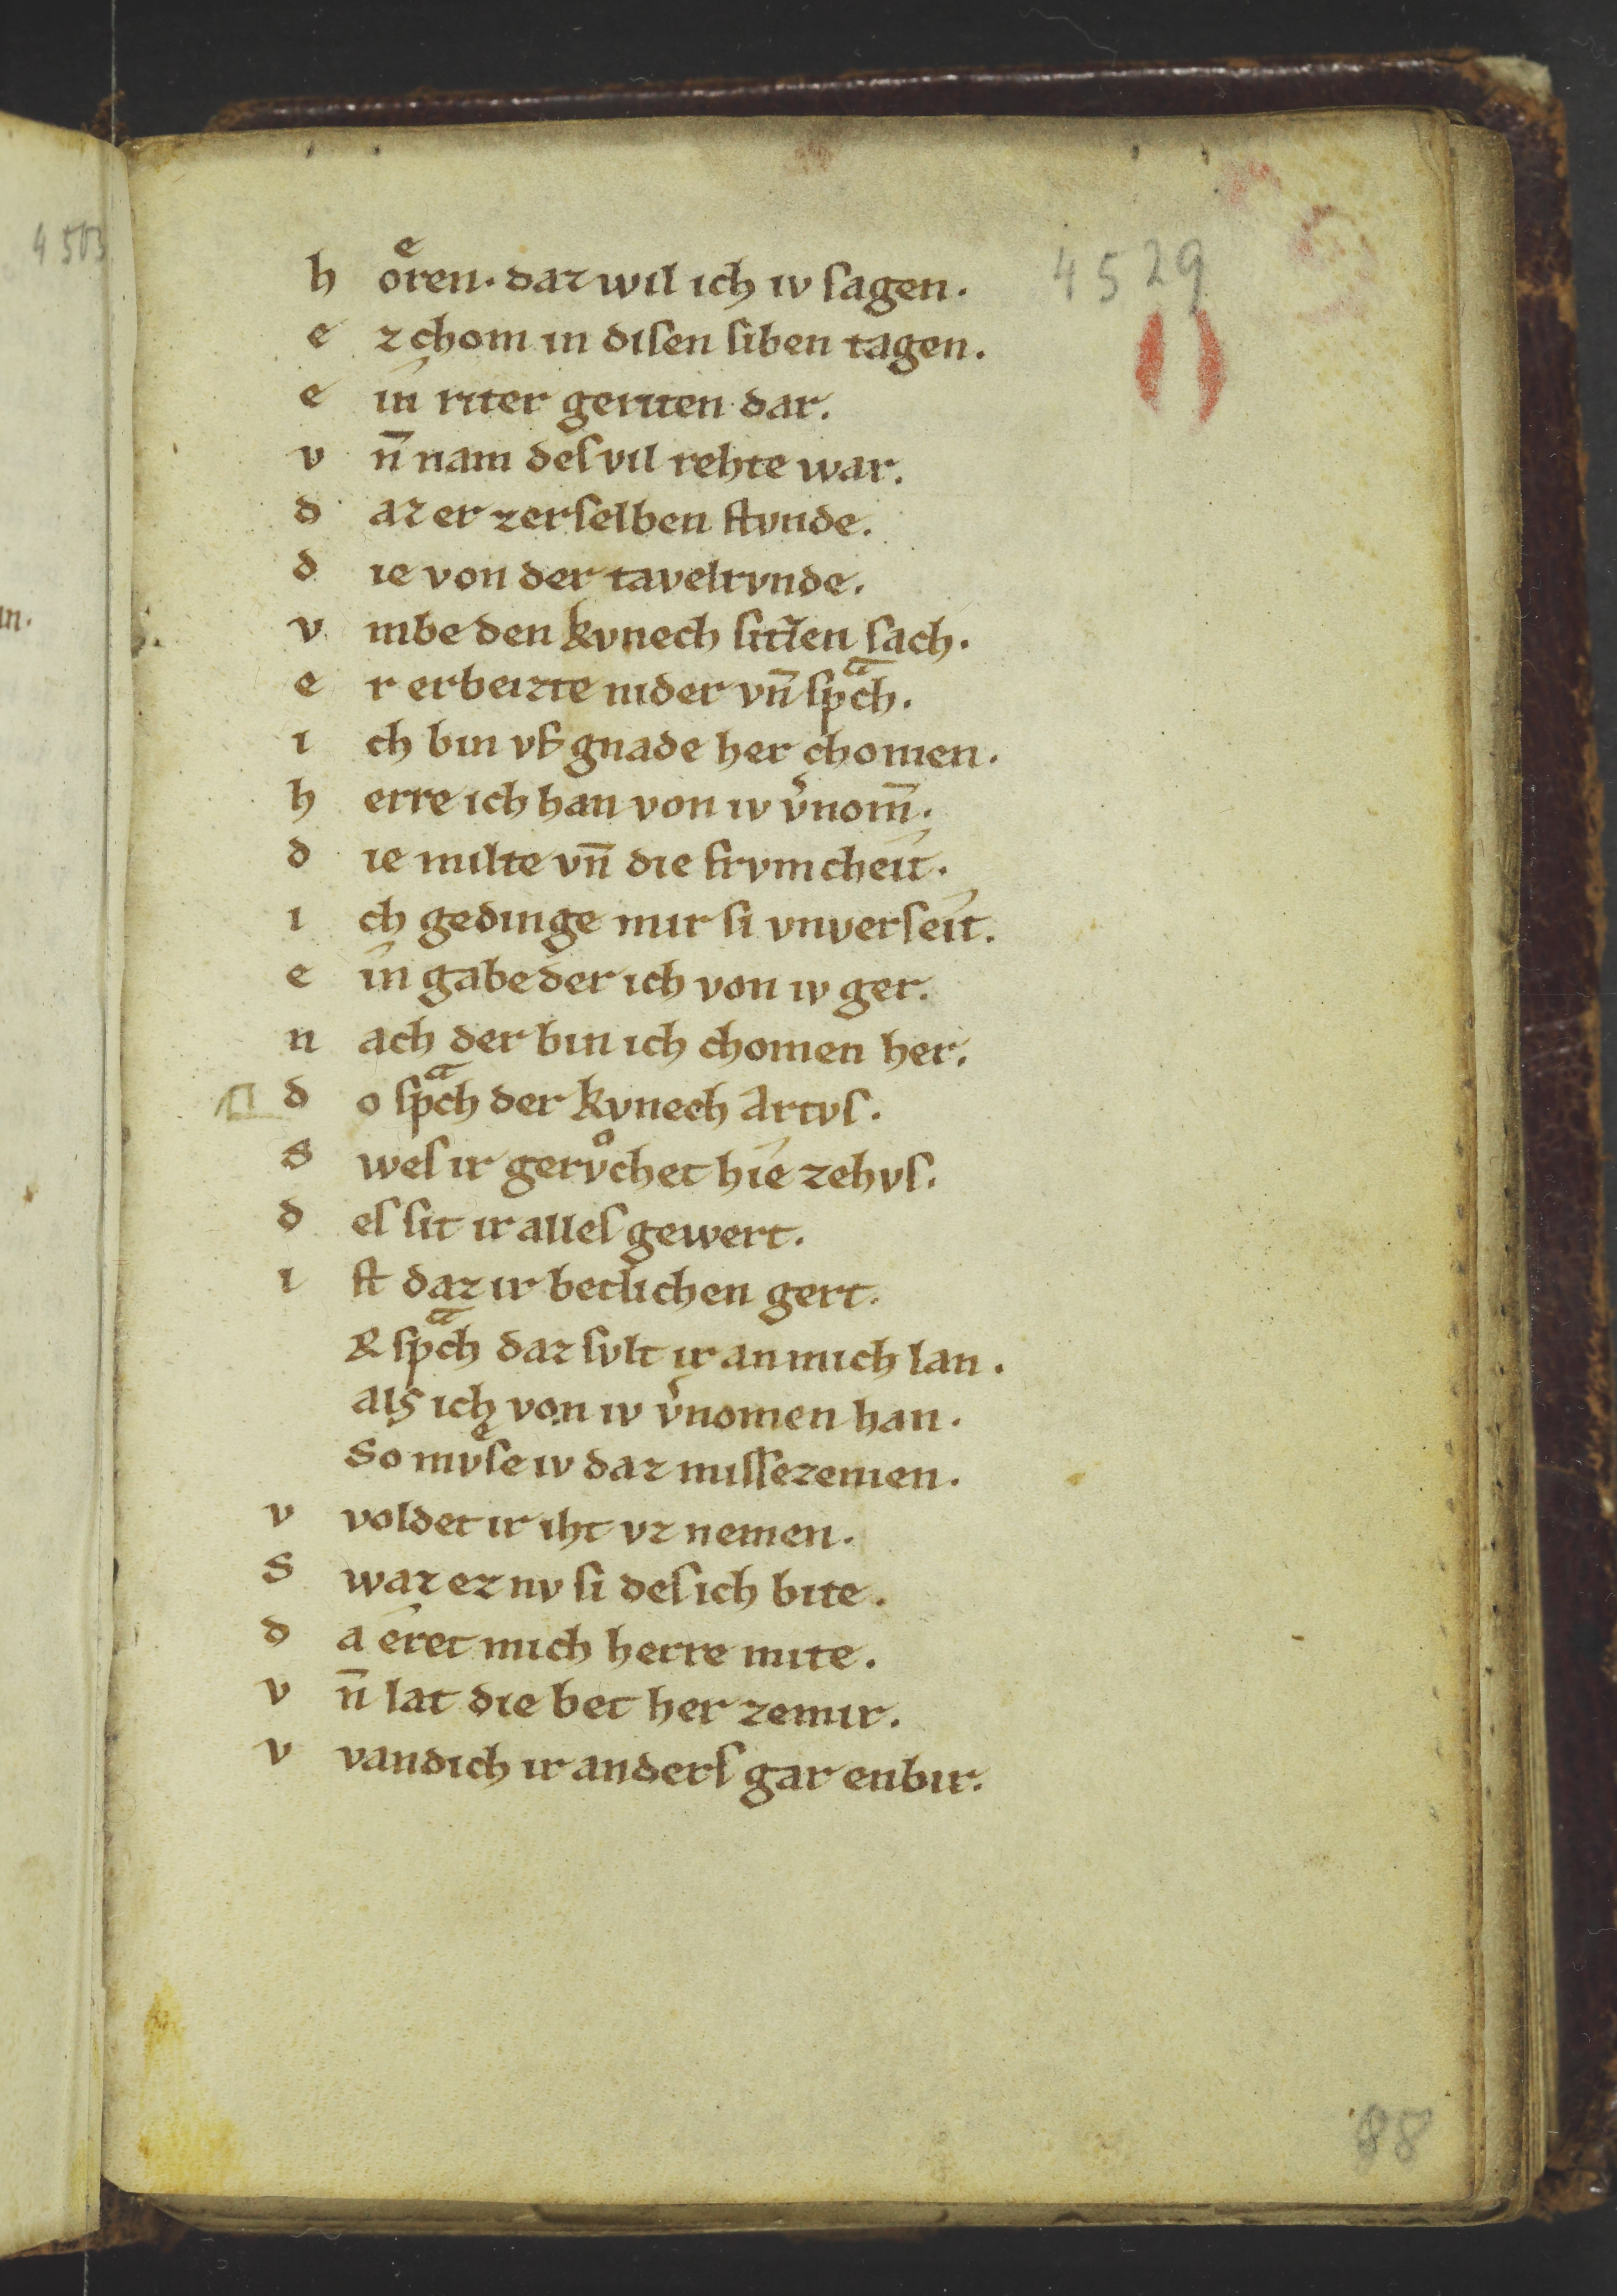 4 503
in.
4529
h oͤren. daz wil ich iv ſagen.
e z chom in diſen ſiben tagen.
e in riter geriten dar.
v n̄ nam des vil rehte war.
d az er zerſelben ſtvnde.
d ie von der tavelrvnde.
v mbe den kvnech ſitzen ſach.
e r erbeizte nider vn̄ ſpͣch.
i ch bin vf gnade her chomen.
h erre ich han von iv v̓nom̄.
d ie milte vn̄ die frvmcheit.
i ch gedinge mir ſi vnverſeit.
e in gabe der ich von iv ger.
n ach der bin ich chomen her.
d o ſpͣch der kvnech Artvſ.
S weſ ir gervͦchet hie zehvſ.
d eſ ſit ir alleſ gewert.
i ſt daz ir betlichen gert.
Er ſpͣch daz ſvlt ir an mich lan.
als ich von iv v̓nomen han.
So mvͤſe iv daz miſſezemen.
v voldet ir iht vz nemen.
S waz ez nv ſi deſ ich bite.
d a eret mich herre mite.
v n̄ lat die bet her zemir.
v vandich ir anderſ gar enbir.
88